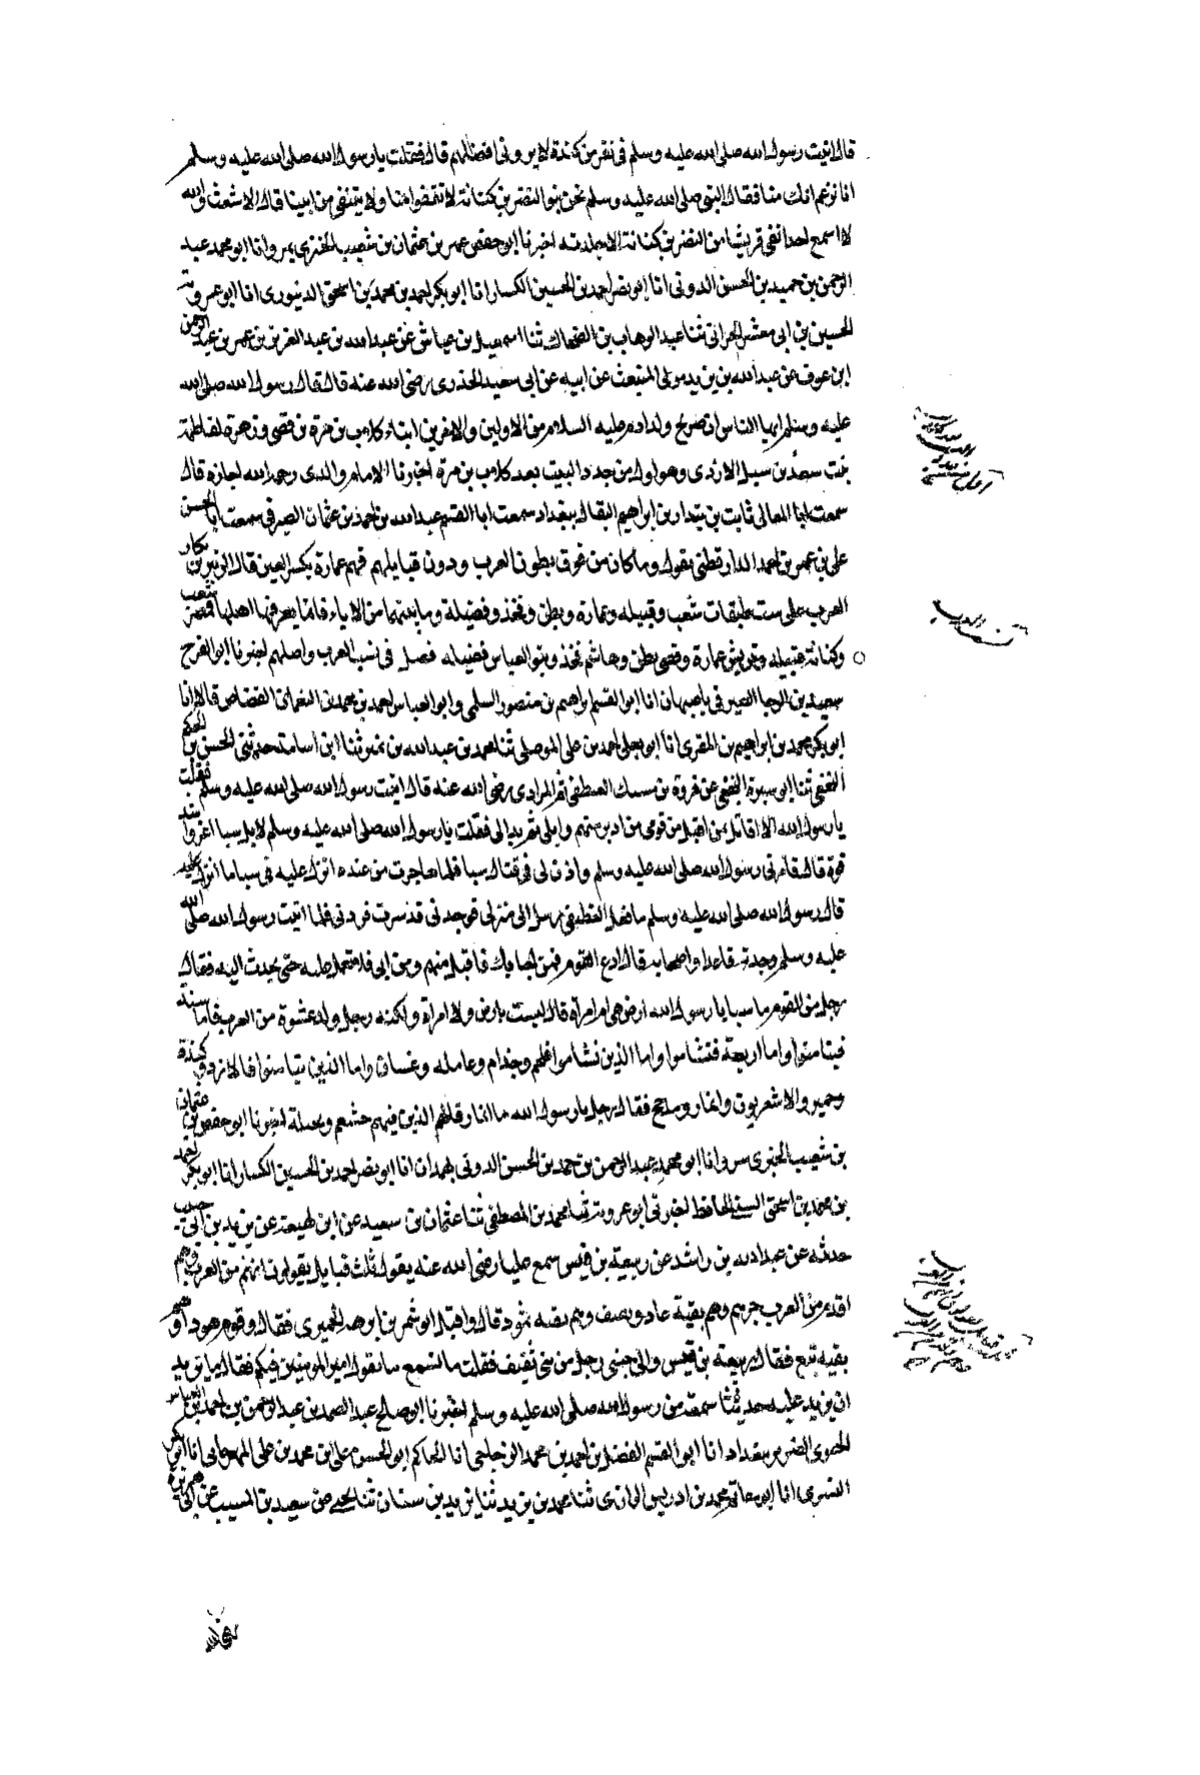 قال اتيت رسول الله صلى الله عليه وسلم في نفر من كندة لا يروني افضلهم قال فقلت يا رسول الله صلى الله عليه وسلم
انا نزعم انك منا فقال النبي صلى الله عليه وسلم نحن بنو النضر بن كنانة لا نقفوا امنا ولا ننتفي من ابينا قال الاشعث والله
لا اسمع احدا نفى قريشا من النضر بن كنانة الا جلدته اخبرنا ابو حفص عمر بن عثمان بن شعيب الجنزي بمرو انا ابو محمد عبد
الرحمن بن حميد بن الحسن الدوني انا ابو نصر احمد بن الحسين الكسار انا ابو بكر احمد بن محمد بن اسحق الدينوري انا ابو عروبة
الحسين بن ابي معشر الحراني ثنا عبد الوهاب بن الضحاك ثنا اسمعيل بن عياش عن عبد الله بن عبد العزيز بن عمر بن عبد الرحمن
ابن عوف عن عبد الله بن يزيد مولى المنبعث عن ابيه عن ابي سعيد الخدري رضي الله عنه قال قال رسول الله صلى الله
عليه وسلم ايها الناس ان صريح ولد ادم عليه السلام من الاولين والاخرين ابناء كلاب بن مرة بن قصي وزهرة لفاطمة
بنت سعد بن سيل الازدي وهو اول من جدد البيت بعد كلاب بن مرة اخبرنا الامام والدي رحمه الله اجازه قال
سمعت ابا المعالي ثابت بن بندار بن ابراهيم البقال ببغداد سمعت ابا القسم عبد الله بن احمد بن عثمان الصيرفي سمعت ابا الحسن
على بن عمر بن احمد الدارقطني يقول وما كان من فوق بطون العرب ودون قبايلهم فهم عمارة بكسر العين قال الزبير بن بكار
العرب على ست طبقات شعب وقبيله وعمارة وبطن وفخذ وفصيلة وما بينهما من الاباء فانما يعرفها اهلها فمضر شعب
وكنانة قبيله وقريش عمارة وقصي بطن وهاشم فخذ وبنو العباس فصيله فصل في نسب العرب واصلهم اخبرنا ابو الفرج
سعيد بن ابي الرجا الصيرفي باصبهان انا ابو القسم ابراهيم بن منصور السلمي وابو العباس احمد بن محمد بن النعمان الفضاض قالا انا
ابو بكر محمد بن ابراهيم بن المقرئ انا ابو يعلى احمد بن على الموصلي ثنا محمد بن عبد الله بن نمير ثنا ابن اسامة حدثني الحسن بن الحكم
النخعي ثنا ابو سبرة النخعي عن فروة بن مسيك الغطيفي ثم المرادي رضي الله عنه قال اتيت رسول الله صلى الله عليه وسلم فقلت
يا رسول الله الا اقاتل بمن اقبل من قومي من ادبر منهم وابلى ثم بدا لي فقلت يا رسول الله صلى الله عليه وسلم لا بل سبا اعز واشد
قوة قال فامرني رسول الله صلى الله عليه وسلم واذن لي في قتال سبا فلما خرجت من عنده انزل عليه في سبا ما انزل
قال رسول الله صلى الله عليه وسلم ما فعل الغطيفي فارسل الى منزلي فوجدني قد سرت فردني فلما اتيت رسول الله صلى الله
عليه وسلم وجدته قاعدا واصحابه قال ادع القوم فمن اجابك فاقبل منهم ومن ابى فلا تعجل عليه حتى تحدث اليه فقال
رجل من القوم ما سبا يا رسول الله ارض هي ام امراة قال ليست بارض ولا امراة ولكنه رجل ولد عشرة من العرب فاما ستة
فتيامنوا واما اربعة فتشاموا واما الذين تشاموا فلخم وجذام وعامله وغسان واما الذين تيامنوا فالازد وكندة
وحمير والاشعريون وانمار ومذحج فقال رجل يا رسول الله ما انمار قال هم الذين فيهم خثعم وبجيلة اخبرنا ابو حفص عمر بن عثمان
بن شعيب الجنزي بمرو انا ابو محمد عبد الرحمن بن حمد بن الحسن الدوني بهمدان انا ابو نصر احمد بن الحسين الكسار انا ابو بكر احمد
بن محمد بن اسحق السني الحافظ اخبرني ابو عروبة ثنا محمد بن المصطفى ثنا عثمان بن سعيد عن ابن لهيعة عن يزيد بن ابي حبيب
حدثه عن عبد الله بن راشد عن ربيعة بن قيس سمع عليا رضي الله عنه يقول ثلث قبايل يقولون انهم من العرب وهم
اقدم من العرب جرهم وهم بقية عاد وثقيف وهم بقية ثمود قال واقبل ابو شمر بن ابرهه الحميري فقال وقوم هود وهم
بقيه تبع فقال ربيعة بن قيس والى جنبي رجل من بني ثقيف فقلت ما تسمع ما يقول امير المومنين فيكم فقال ما يريد
ان يزيد عليه حديثا سمعته من رسول الله صلى الله عليه وسلم اخبرنا ابو صالح عبد الصمد بن عبد الرحمن بن احمد بن العباس
الحنوي الضرير ببغداد انا ابو القسم الفضل بن احمد بن محمد الزجاجي انا الحاكم ابو الحسن على بن محمد بن على المهرجاني انا ابو
انا ابو حاتم محمد بن ادريس الرازي ثنا محمد بن يزيد ثنا يزيد بن سنان ثنا يحيى عن سعيد بن المسيب عن ابي هريرة